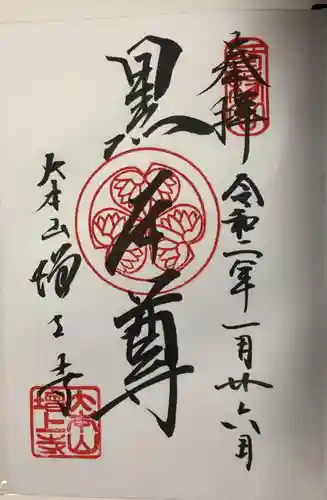 奉拝
令和二年一月廿六日
黒本尊
大本山増上寺
大本山
増上寺